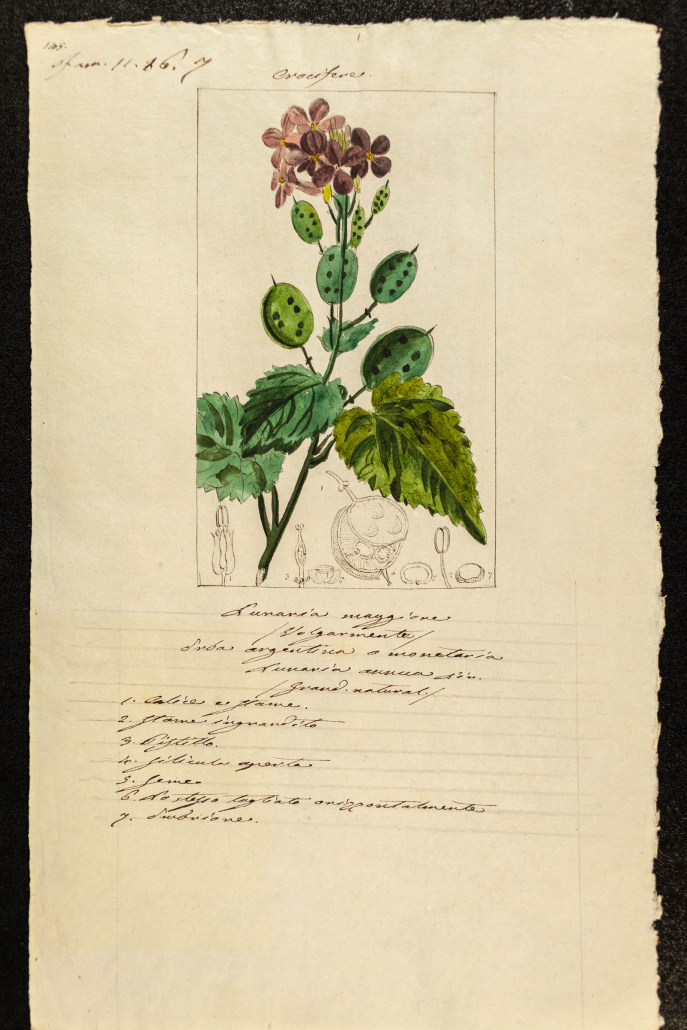 11. 16. 7
Crocifere.
Lunaria maggiore
/Volgarmente/
Erba argentina o monetaria
Lunaria annua Lin.
/Grand. natural./
1. Calice e stame.
2. Stame ingrandito
3. Pistillo.
4. Silicula aperta
5. Seme
6. Lo stesso tagliato orizzontalmente
7. Embrione.